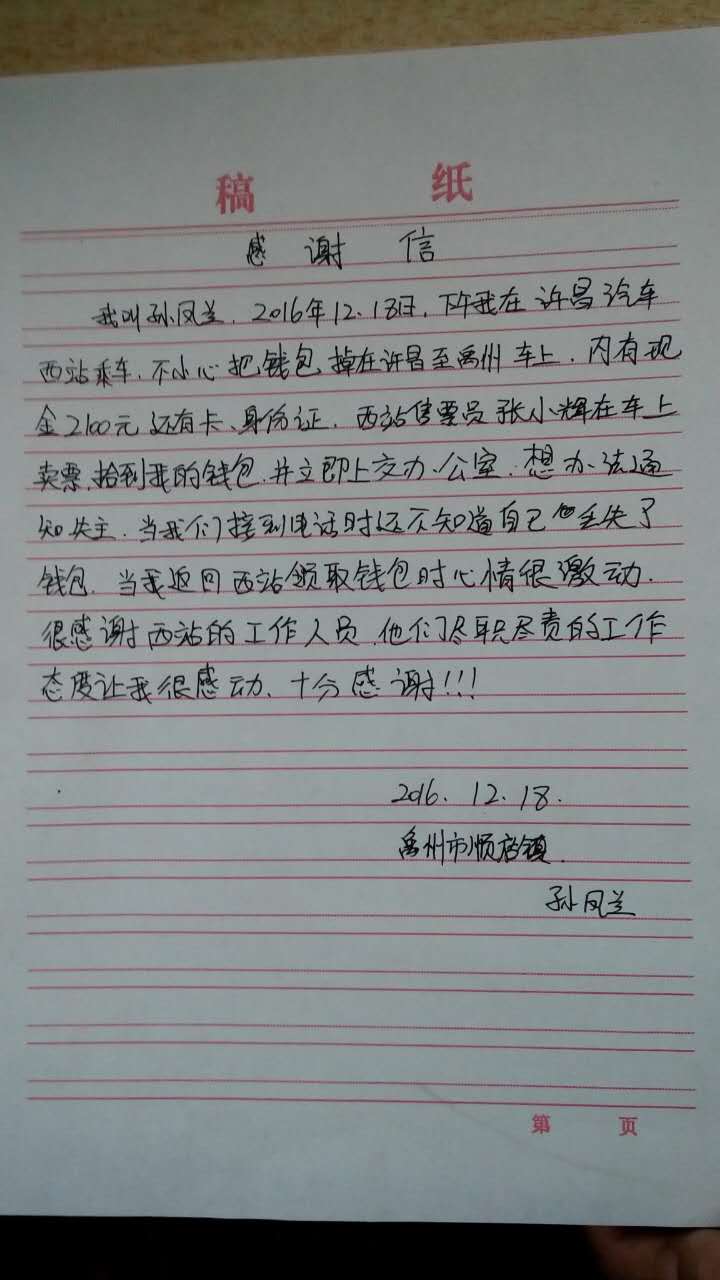 稿 纸
感 谢 信
我叫孙凤兰.2016年12.18日.下午我在许昌汽车
西站乘车.不小心把钱包掉在许昌至禹州车上.内有现
金2100元还有卡、身份证.西站售票员张小辉在车上
卖票.拾到我的钱包.并立即上交办公室.想办法通
知失主.当我们接到电话时还不知道自己丢失了
钱包.当我返回西站领取钱包时心情很激动.
很感谢西站的工作人员.他们尽职尽责的工作
态度让我很感动、十分感谢!!!
2016.12.18.
禹州市顺店镇.
孙凤兰
第 页